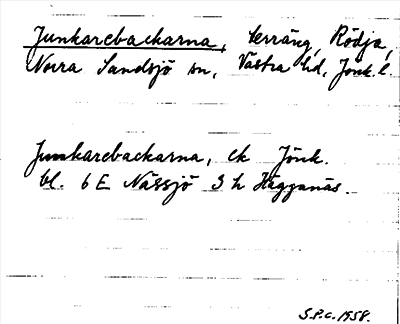 Junkarebackarna, terräng, Rödja,
Norra Sandsjö sn, Västra hd, Jönk. l.
Junkarebackarna, ek Jönk.
bl. 6 E Nässjö 3 h Hägganäs.
S.P.C. 1958.